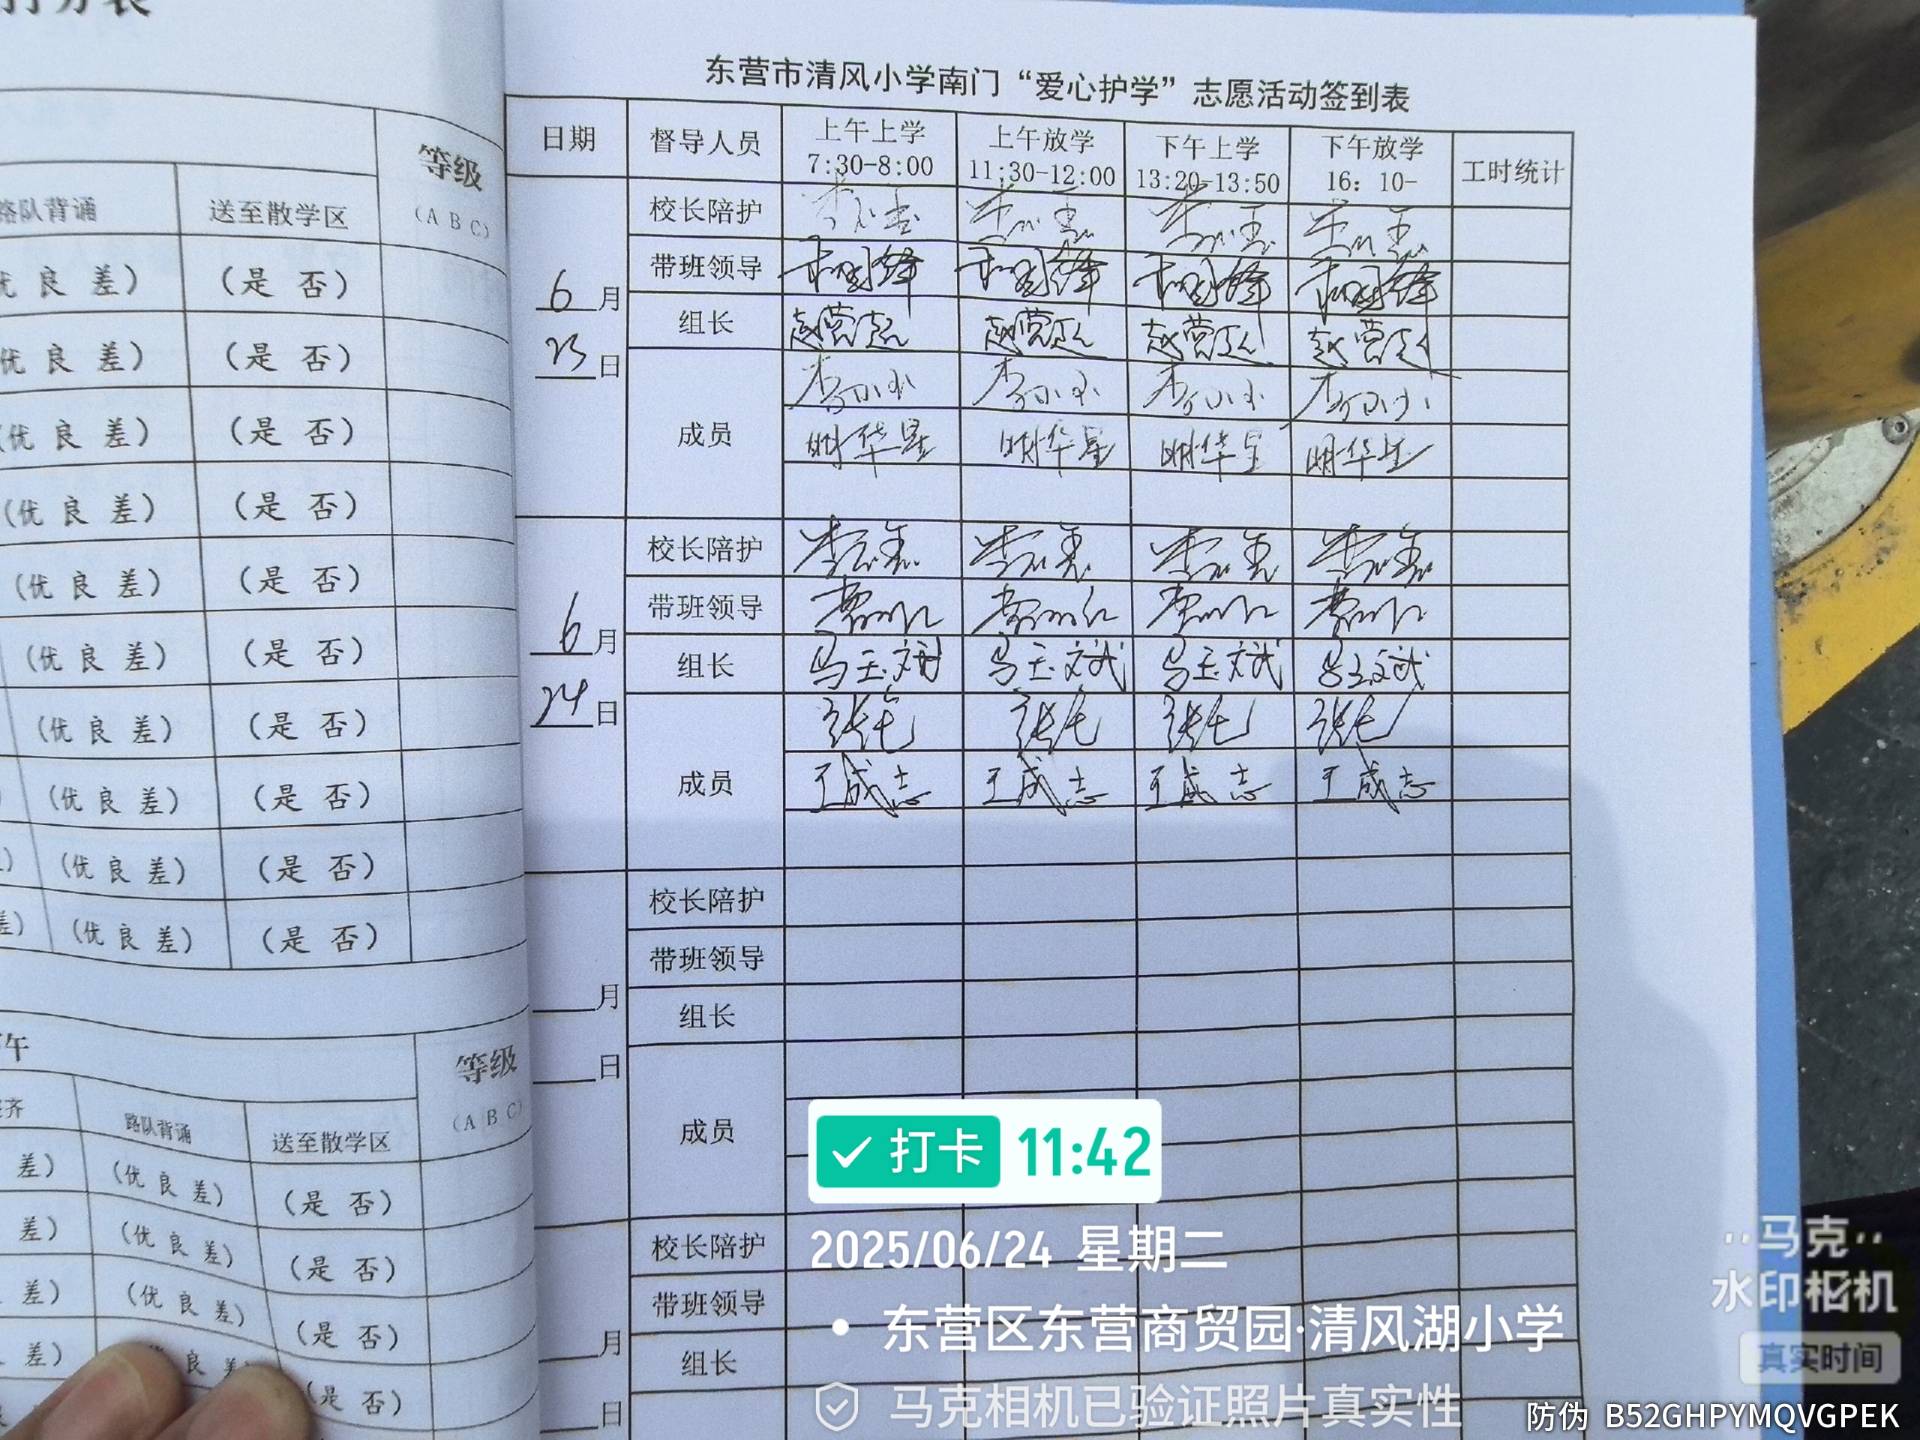 等级
(A B C)
路队背诵
送至散学区
优 良 差)
(是 否)
优 良 差)
(是 否)
(优 良 差)
(是 否)
(优 良 差)
(是 否)
(优 良 差)
(是 否)
(优 良 差)
(是 否)
(优 良 差)
(是 否)
(优 良 差)
(是 否)
(优 良 差)
(是 否)
(优 良 差)
(是 否)
午
等级
(A B C)
路队背诵
送至散学区
差)
(优 良 差)
(是 否)
差)
(优 良 差)
(是 否)
差)
(优 良 差)
(是 否)
差)
良 差)
(是 否)
(是 否)
东营市清风小学南门“爱心护学”志愿活动签到表
日期
督导人员
上午上学
7:30-8:00
上午放学
11:30-12:00
下午上学
13:20-13:50
下午放学
16：10-
工时统计
6月
23日
校长陪护
带班领导
组长
赵营超 赵营超 赵营超 赵营超
成员
明华星 明华星 明华星 明华星
6月
24日
校长陪护
带班领导
组长
马玉斌 马玉斌 马玉斌 马玉斌
成员
王成志 王成志 王成志 王成志
月
日
校长陪护
带班领导
组长
成员
月
日
校长陪护
带班领导
组长
打卡 11:42
2025/06/24 星期二
东营区东营商贸园·清风湖小学
马克相机已验证照片真实性
马克
水印相机
真实时间
防伪 B52GHPYMQVGPEK